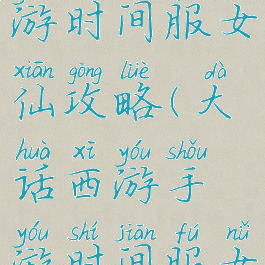 游时间服女
xiān gōng lüè dà
仙攻略(大
huà xī yóu shǒu
话西游手
yóu shí jiān fú nǚ
游时间服女